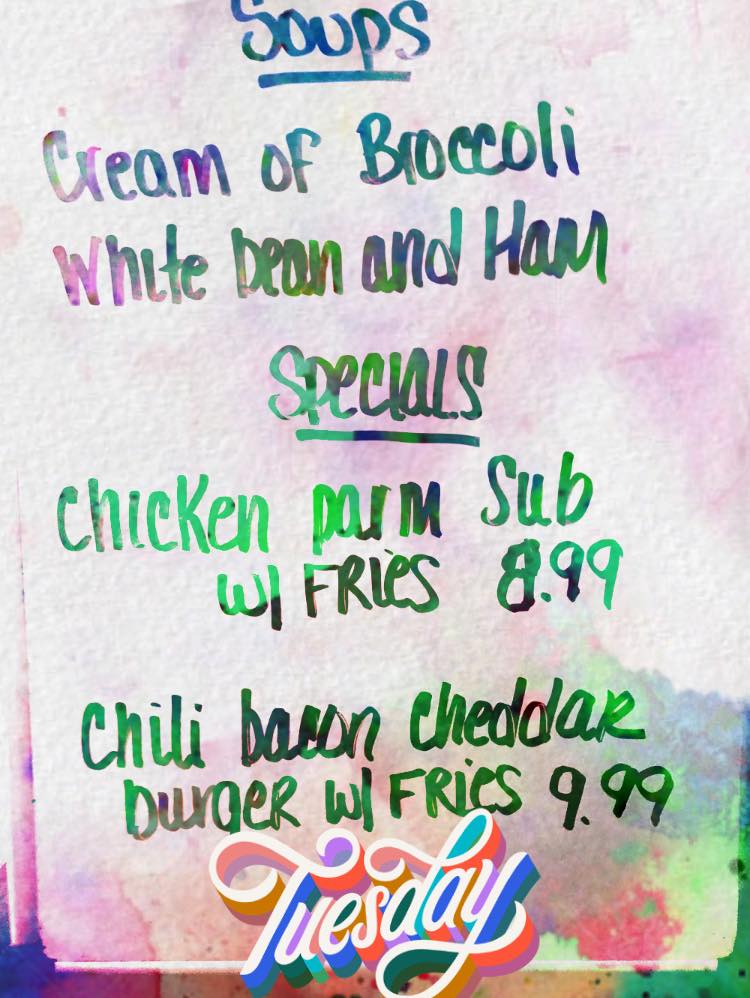 Soups
Cream of Broccoli
White bean and Ham
Specials
Chicken parm Sub
w/ FRies 8.99
Chili bacon cheddar
burger w/ FRies 9.99
Tuesday